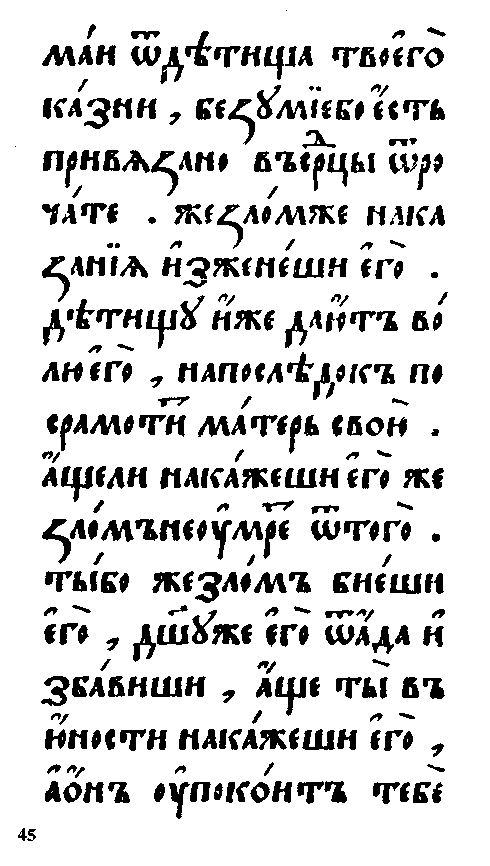 ма́и ѿдѣтища твоегѡ̀
ка́зни , беꙁꙋмїебо є҆́сть
привѧꙁано въ ср҃дцы ѿро
ча́те . жеꙁло́мже нака
ꙁанїѧ и҆зжене́ши є҆го̀ .
дѣтищꙋ и҆́же даю҆тъ во́
лю є҆го̀ , напослѣдокъ по
срамоти́т ма́терь свою̀ .
а҆́щели нака́жеши є҆го̀ же
ꙁло́мъ не оу҆мре́ ѿ того̀ .
ты́бо жезло́мъ бие́ши
є҆го̀ , дш҃ꙋже є҆го̀ ѿ а҆́да и҆
зба́виши , а҆́ще ты̀ въ
ю҆́ности нака́жеши є҆го̀ ,
а҆ о҆́нъ оу҆поко́итъ тебѐ
45